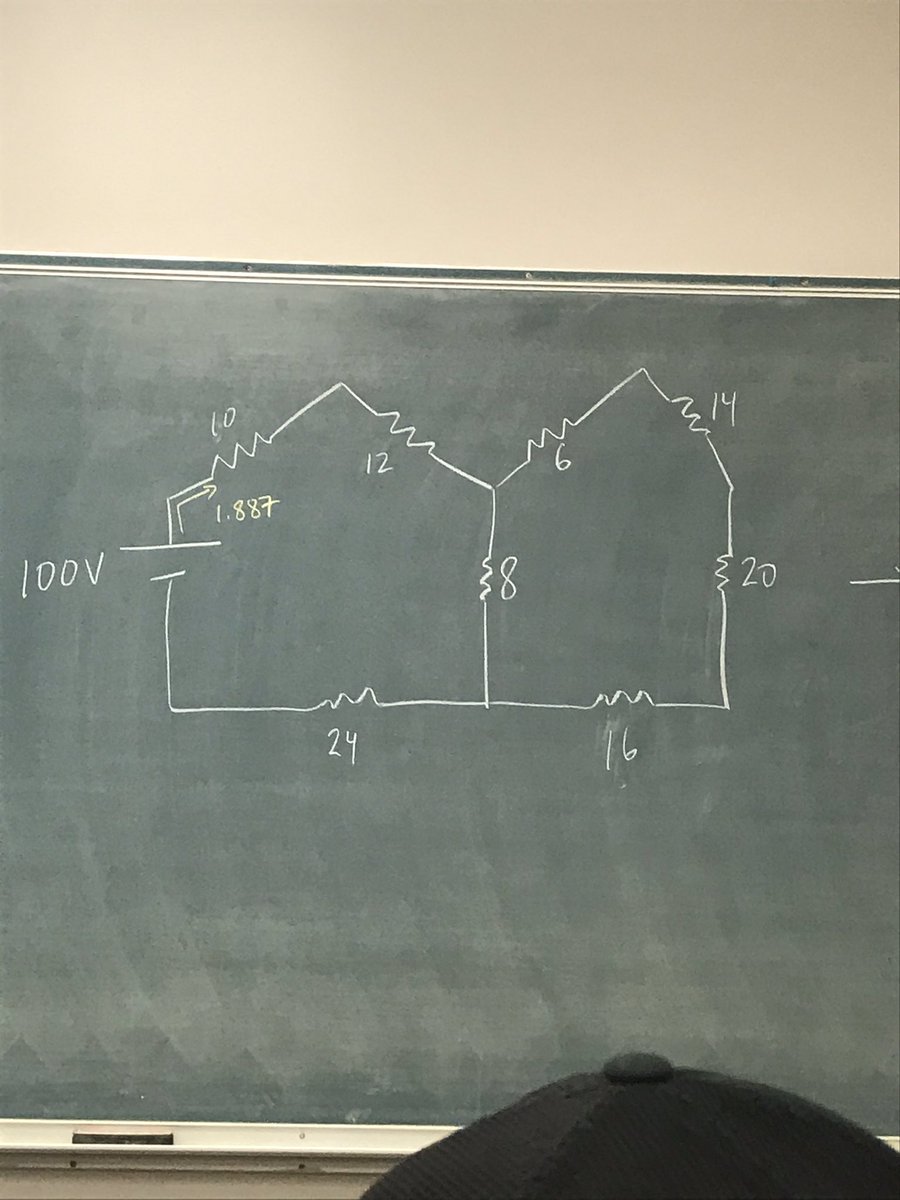 10
14
12
6
1.887
100V
8
20
24
16